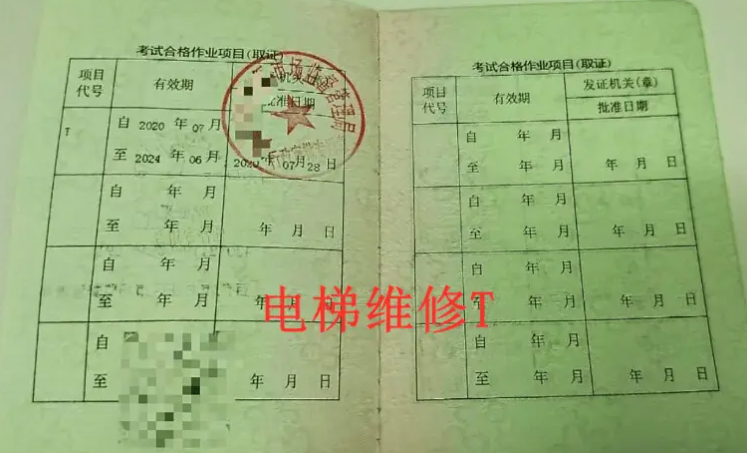 考试合格作业项目(取证)
项目代号 有效期 机关 批准日期
T 自 2020 年 07 月
至 2024 年 06 月 2020 年 07 月 28 日
市场监督管理局
自 年 月
至 年 月 年 月 日
自 年 月
至 年 月 年 月 日
自
至 年 月 日
考试合格作业项目(取证)
项目代号 有效期 发证机关(章) 批准日期
自 年 月
至 年 月 年 月 日
自 年 月
至 年 月 年 月 日
自 年 月
至 年 月 年 月 日
自 年 月
至 年 月 年 月 日
电梯维修T